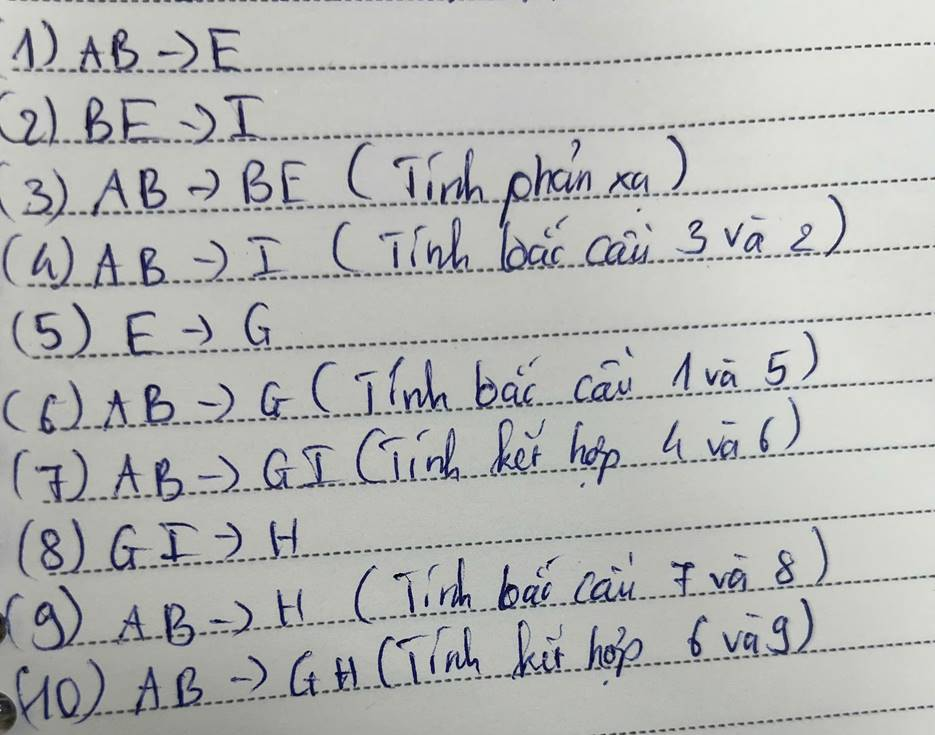 1) AB → E
(2) BE → I
(3) AB → BE (Tính phản xạ)
(4) AB → I (Tính bắc cầu 3 và 2)
(5) E → G
(6) AB → G (Tính bắc cầu 1 và 5)
(7) AB → GI (Tính kết hợp 4 và 6)
(8) GI → H
(9) AB → H (Tính bắc cầu 7 và 8)
(10) AB → GH (Tính kết hợp 6 và 9)